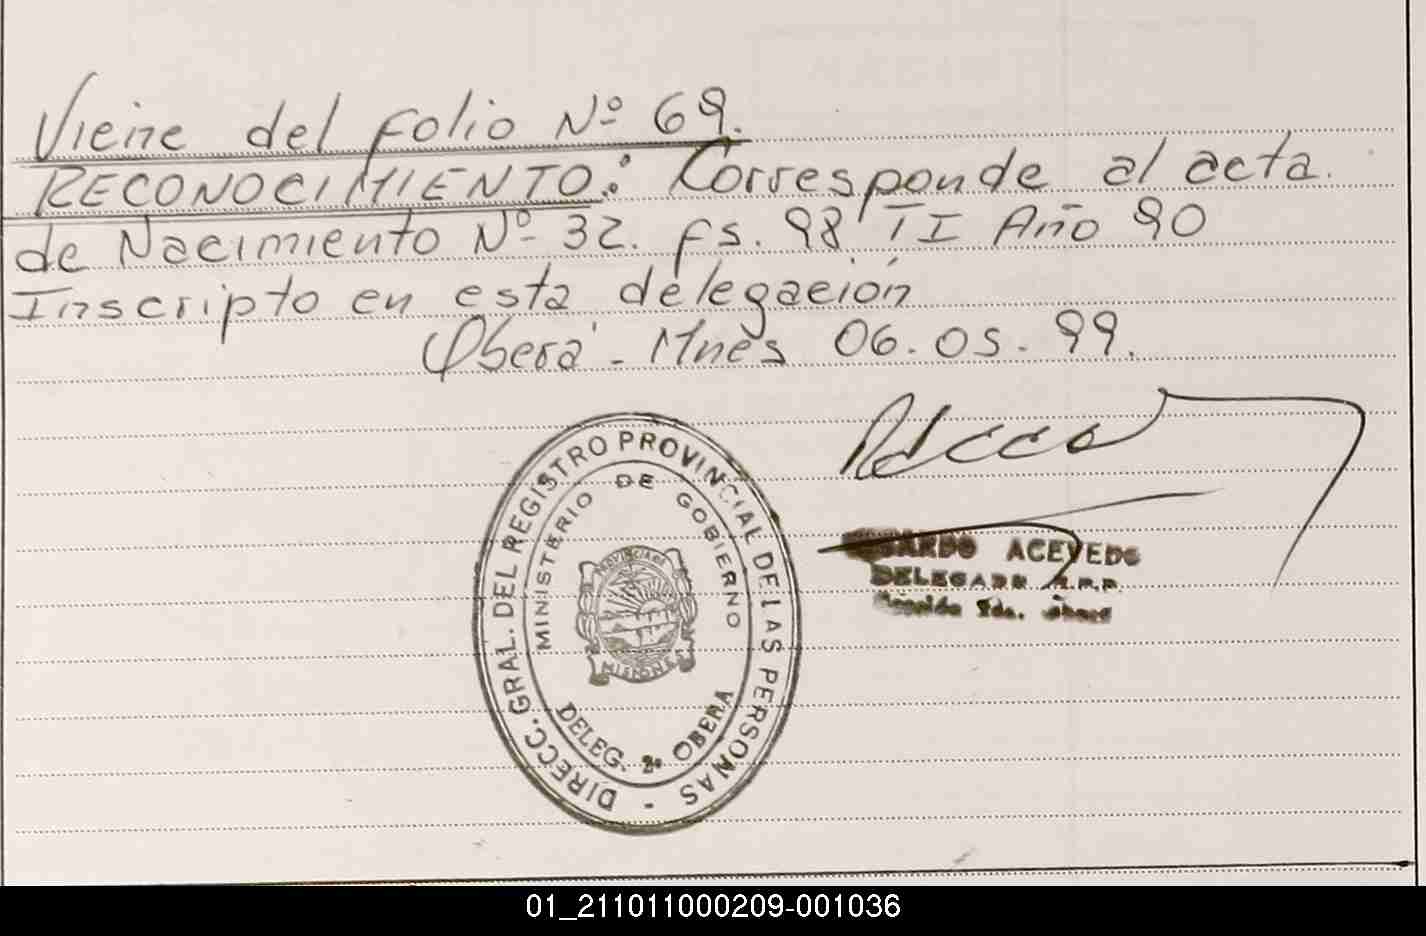 Viene del folio Nº 69.
RECONOCIMIENTO: Corresponde al acta.
de Nacimiento Nº 32. fs. 98 TI Año 90
Inscripto en esta delegación
Oberá - Mnes 06.05.99.
DIRECC. GRAL. DEL REGISTRO PROVINCIAL DE LAS PERSONAS -
MINISTERIO DE GOBIERNO
PROVINCIA DE
MISIONES
DELEG. 2ª OBERA
ACEVEDO
DELEGADO R.P.P.
Sección 2da. Oberá
01_211011000209-001036